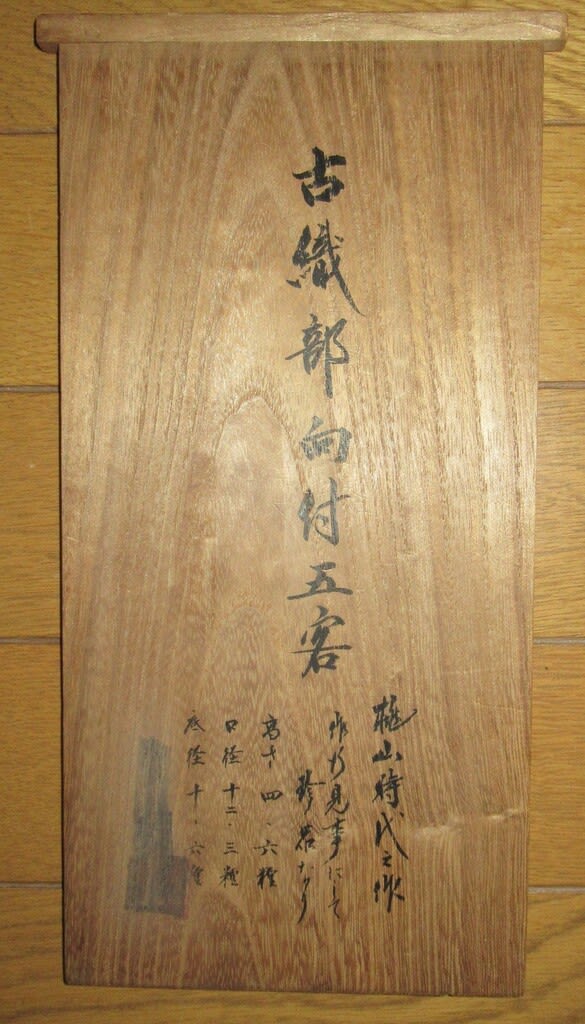 古織部向付五客
桃山時代之作
作行見事にして
珍器なり
高さ四、六糎
口径十二、三糎
底径十、六糎